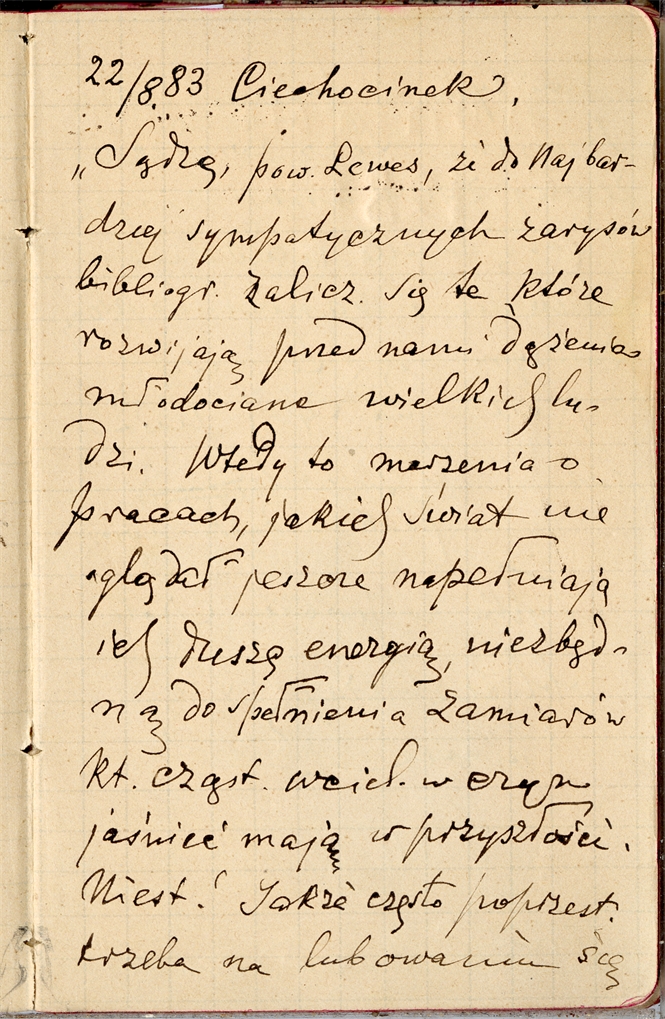 22/8 83 Ciechocinek,
„Sądzę, pow. Lewes, że do najbar-
dziej sympatycznych zarysów
bibliogr. zalicz. się te które
rozwijają przed nami dążenia
młodociane wielkich lu-
dzi. Wtedy to marzenia o
pracach, jakich świat nie
oglądał jeszcze napełniają
ich duszę energią, niezbęd-
ną do spełnienia zamiarów
kt. częst. wciel. w czyn
jaśnieć mają w przyszłości.
Niest.! Jakże często poprzest.
trzeba na lubowaniu się